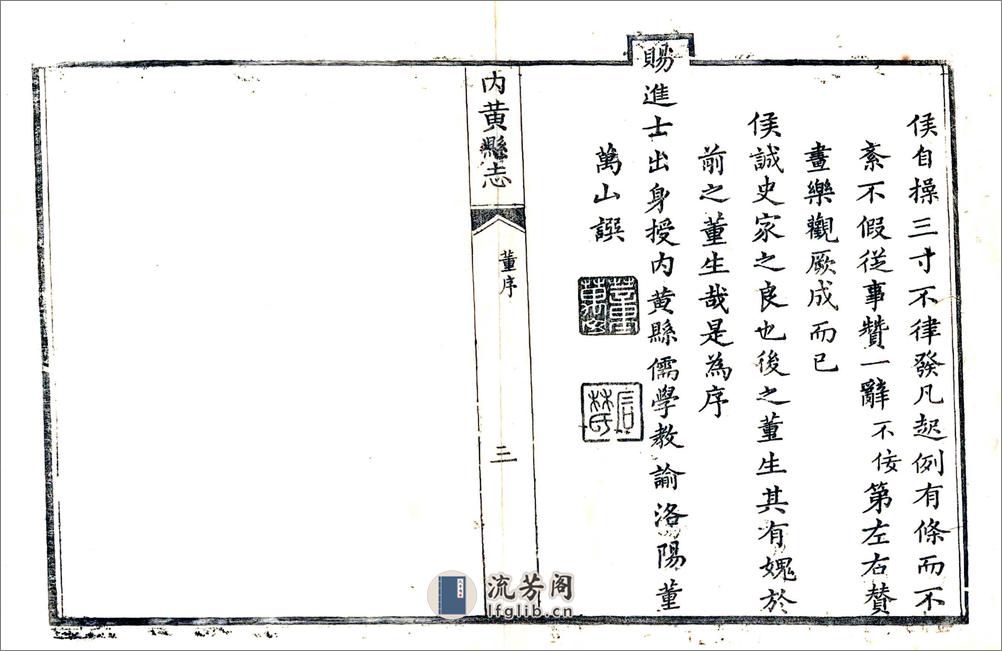 侯自操三寸不律發凡起例有條而不
紊不假從事贊一辭不佞第左右贊
畫樂觀厥成而已
侯誠史家之良也後之董生其有媿於
前之董生哉是為序
賜進士出身授內黃縣儒學教諭洛陽董
萬山譔
內黃縣志
董序
三
流芳阁
lfglib.cn